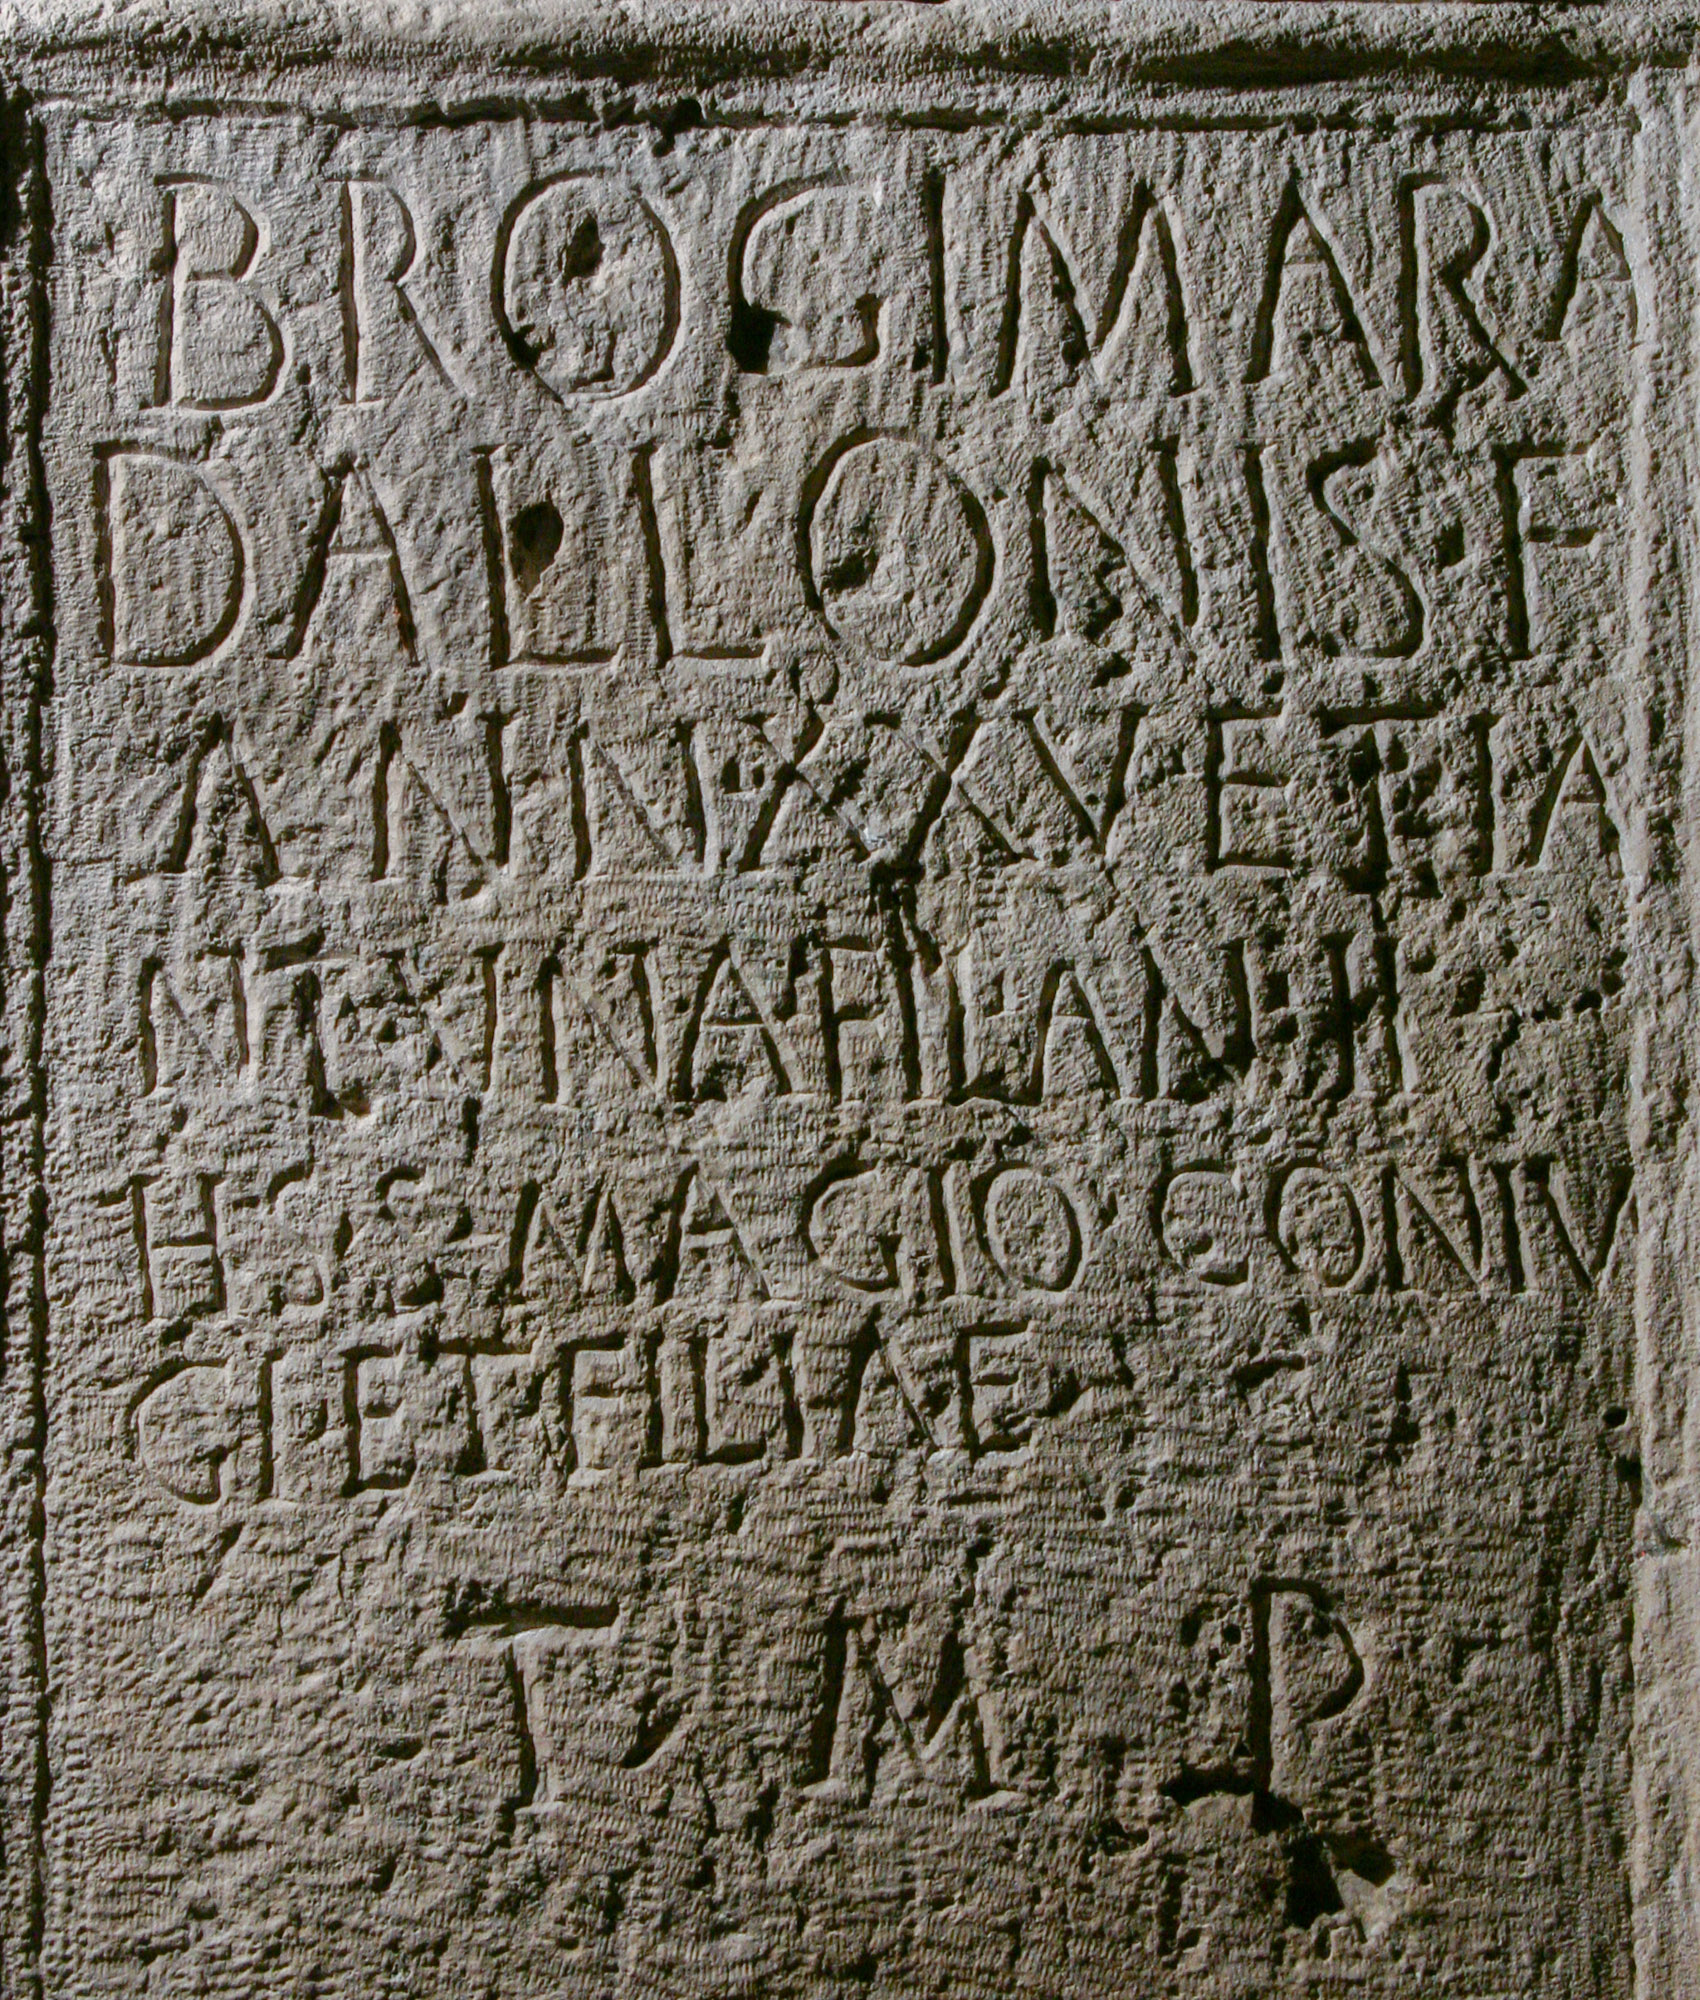 BROGIMARA
DALLONIS·F
ANN·XXXV·ET·IA
NTVINA FIL·AN·II
H·S·S·MAGIO CONIV
GI·ET·FILIAE
T·M·P